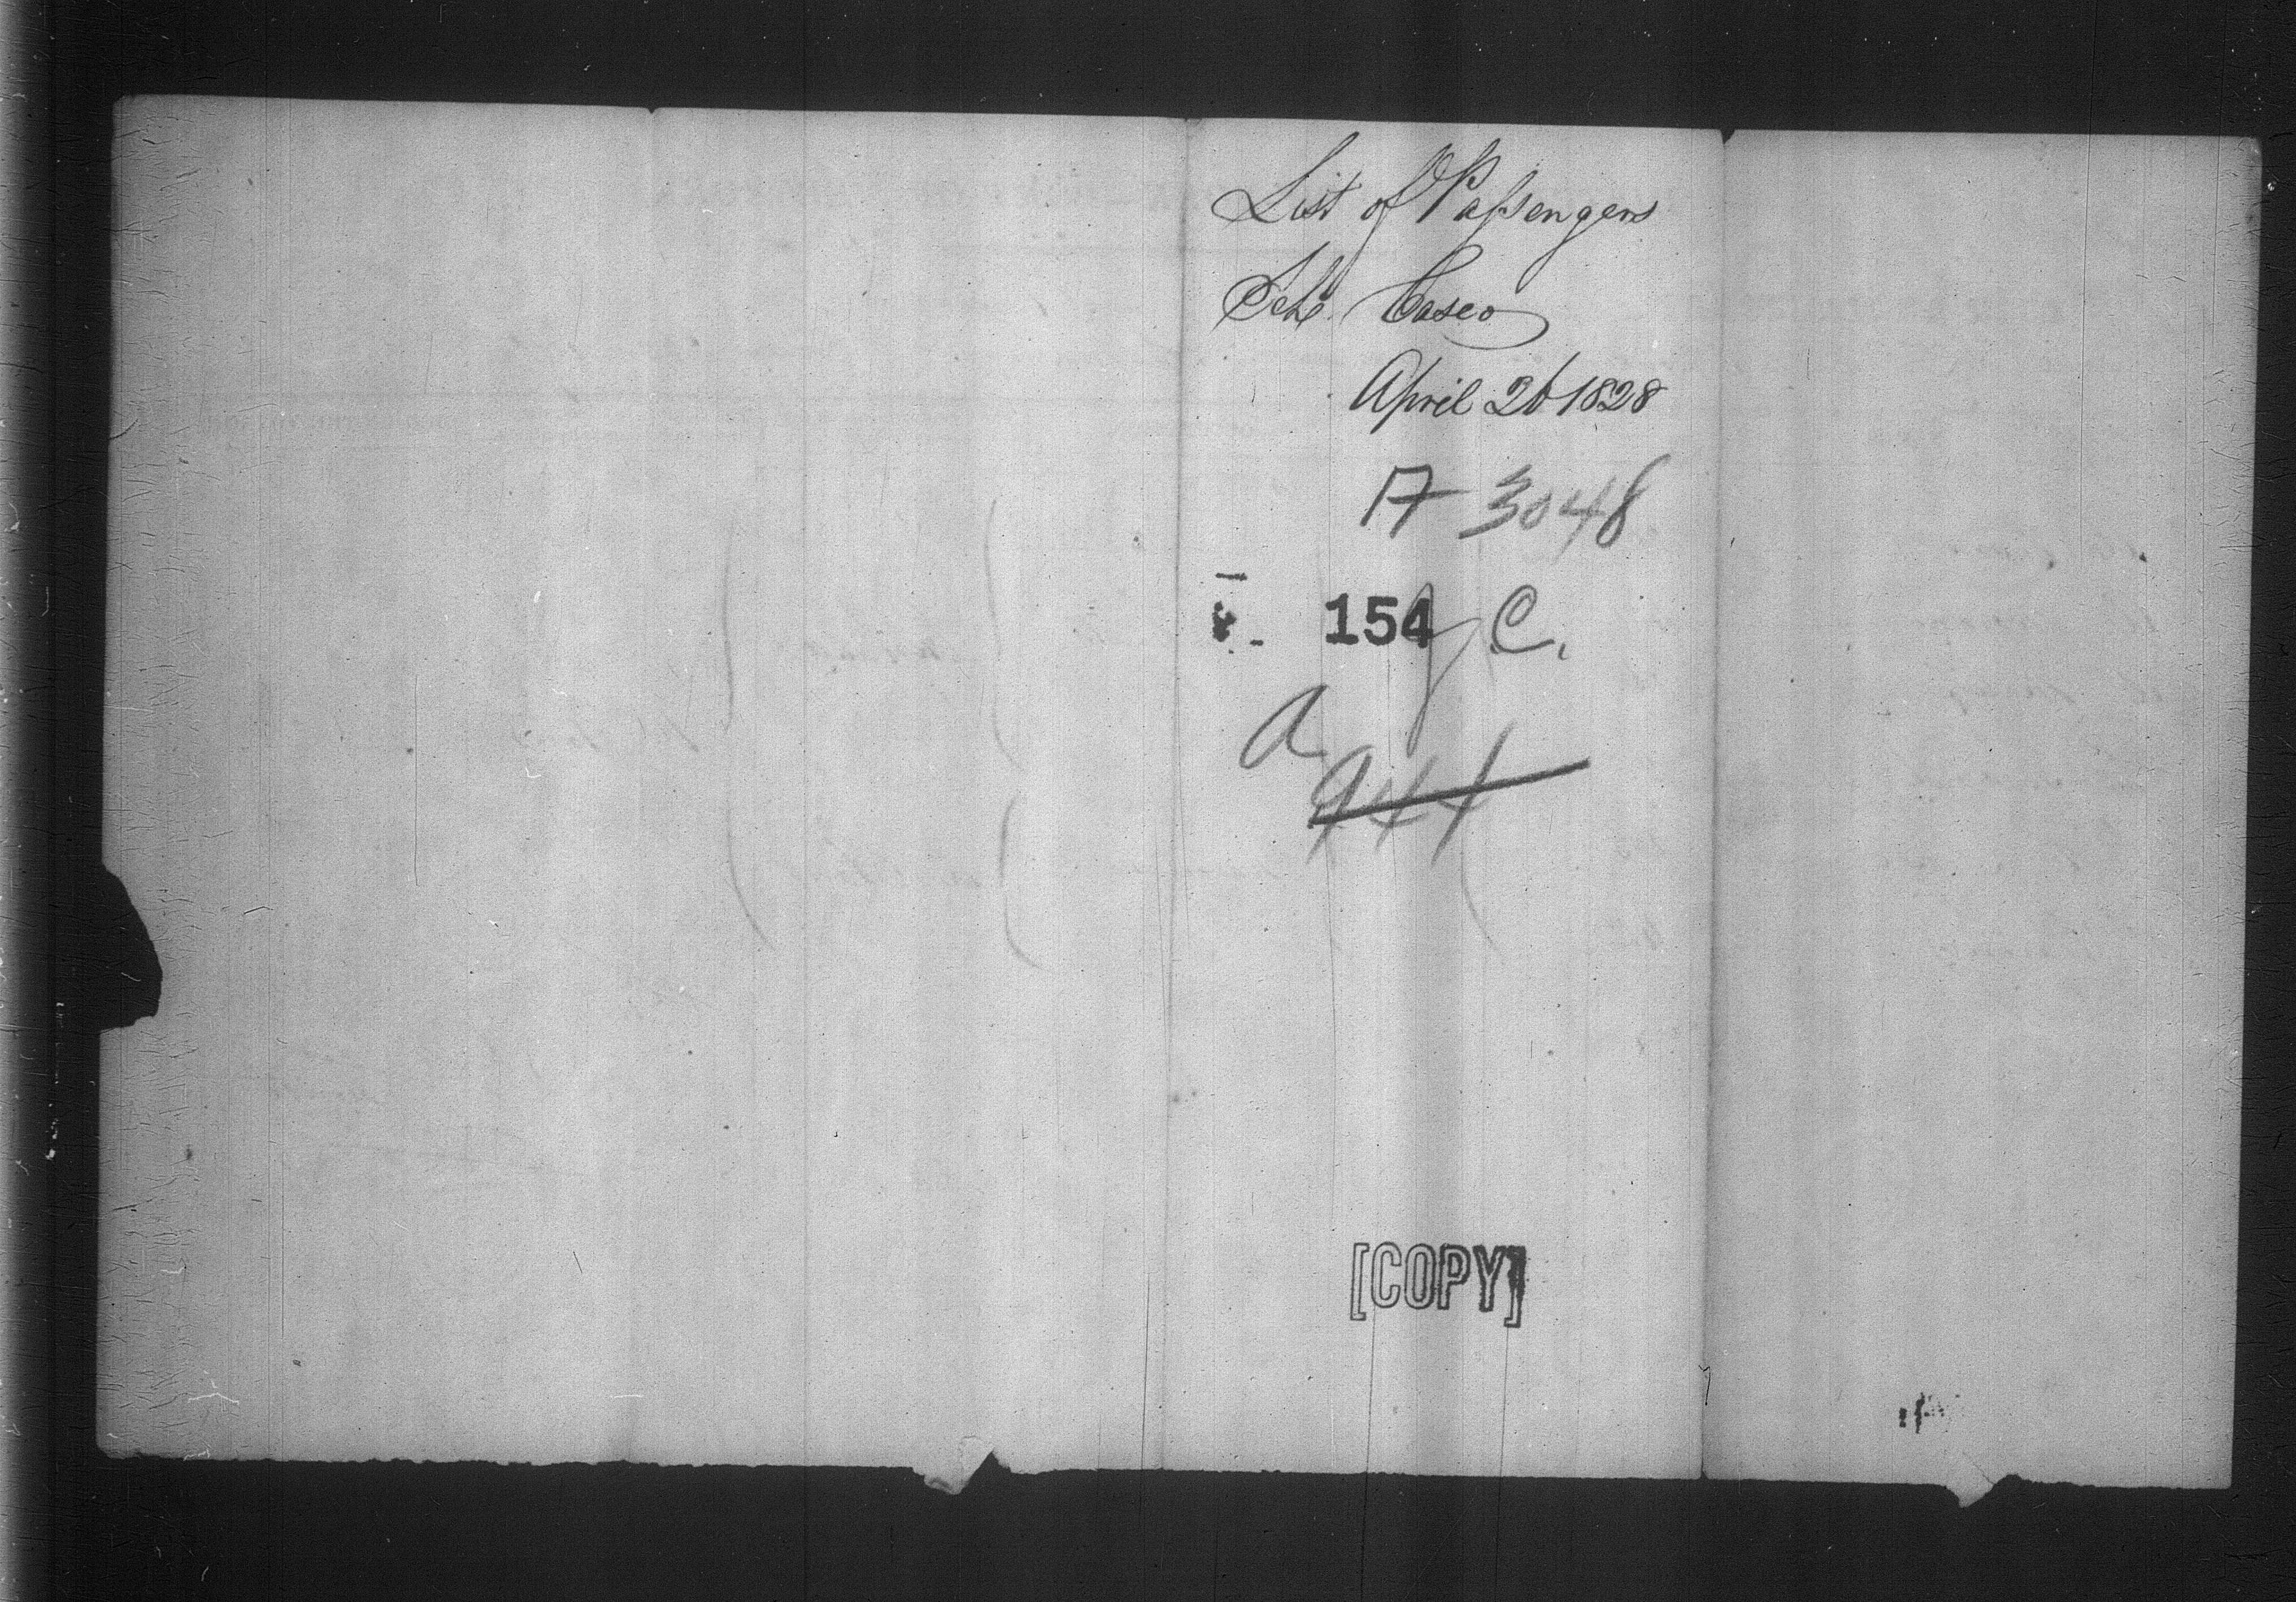 List of Passengers
Sch Casco
April 26 1828
A 3048
154 J.C.
A
944
[COPY]